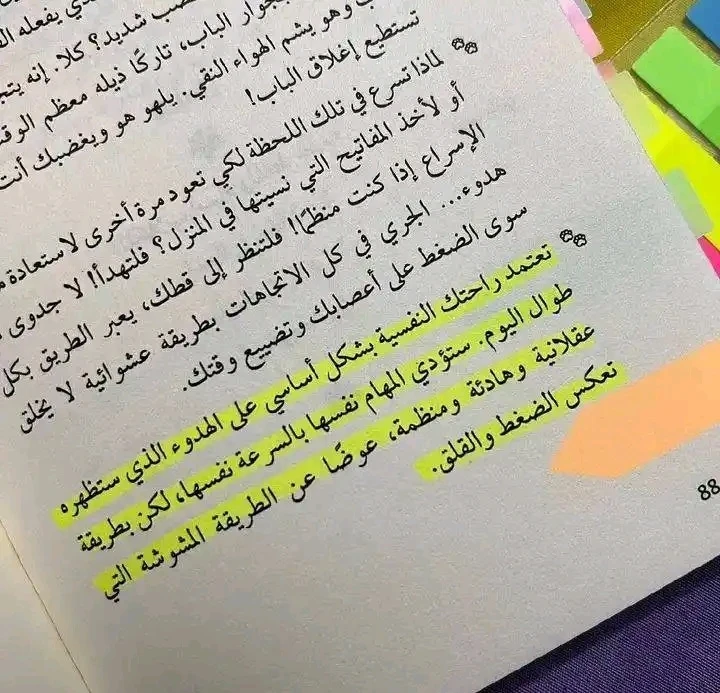 يفعله
شديد؟ كلا. إنه
بجوار الباب، تاركًا ذيله معظم
وهو يشم الهواء النقي. يلهو هو ويغضبك أنت
تستطيع إغلاق الباب!
لماذا تسرع في تلك اللحظة لكي تعود مرة أخرى لاستعادة
أو لأخذ المفاتيح التي نسيتها في المنزل؟ فلتهدأ! لا جدوى
الإسراع إذا كنت منظمًا! فلتنظر إلى قطك، يعبر الطريق بكل
هدوء... الجري في كل الاتجاهات بطريقة عشوائية لا يخلق
سوى الضغط على أعصابك وتضييع وقتك.
تعتمد راحتك النفسية بشكل أساسي على الهدوء الذي ستظهره
طوال اليوم. ستؤدي المهام نفسها بالسرعة نفسها، لكن بطريقة
عقلانية وهادئة ومنظمة، عوضًا عن الطريقة المشوشة التي
تعكس الضغط والقلق.
88